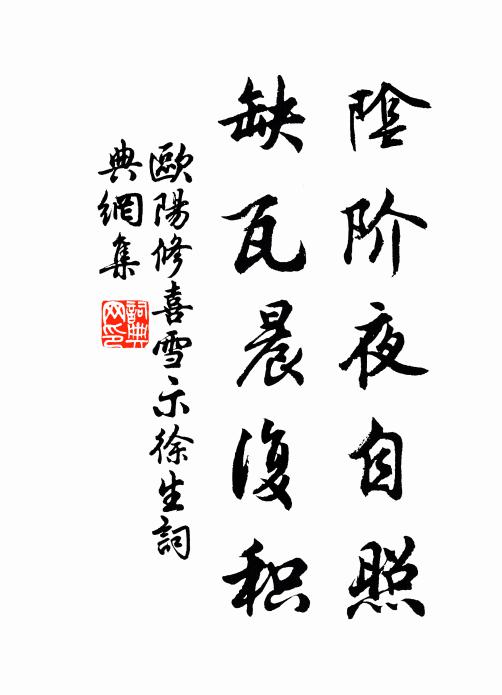 陰阶夜自照
缺瓦晨復积
歐陽修喜雪示徐生詞
典網集
詞典
网印